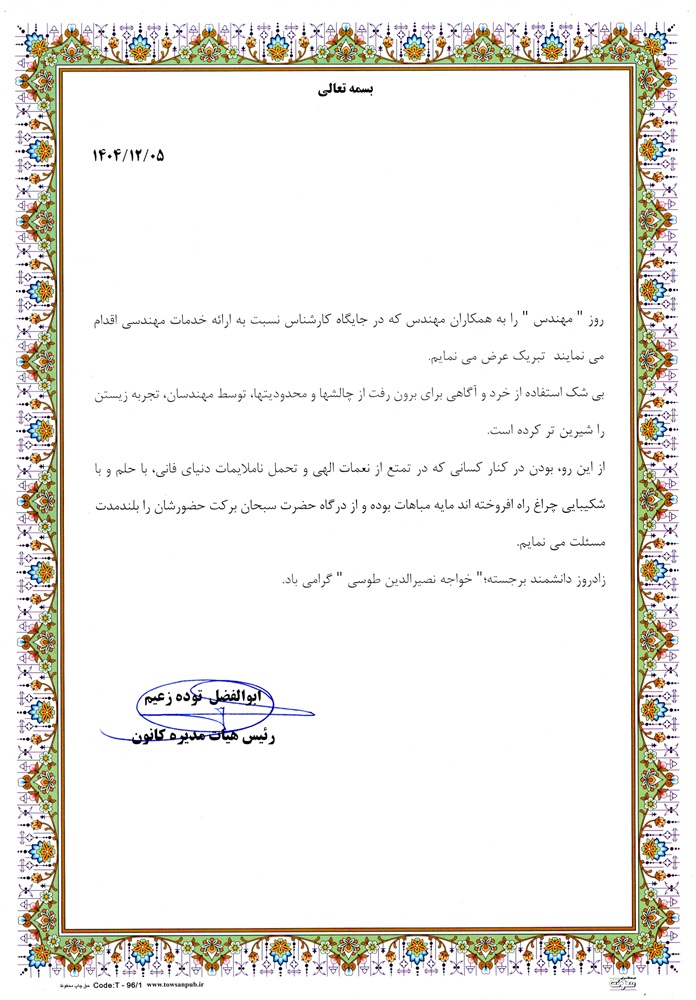 بسمه تعالی
۱۴۰۴/۱۲/۰۵
روز " مهندس " را به همکاران مهندس که در جایگاه کارشناس نسبت به ارائه خدمات مهندسی اقدام
می نمایند تبریک عرض می نمایم.
بی شک استفاده از خرد و آگاهی برای برون رفت از چالشها و محدودیتها، توسط مهندسان، تجربه زیستن
را شیرین تر کرده است.
از این رو، بودن در کنار کسانی که در تمتع از نعمات الهی و تحمل ناملایمات دنیای فانی، با حلم و با
شکیبایی چراغ راه افروخته اند مایه مباهات بوده و از درگاه حضرت سبحان برکت حضورشان را بلندمدت
مسئلت می نمایم.
زادروز دانشمند برجسته؛" خواجه نصیرالدین طوسی " گرامی باد.
ابوالفضل توده زعیم
رئیس هیات مدیره کانون
حق چاپ محفوظ Code:T - 96/1 www.towsanpub.ir